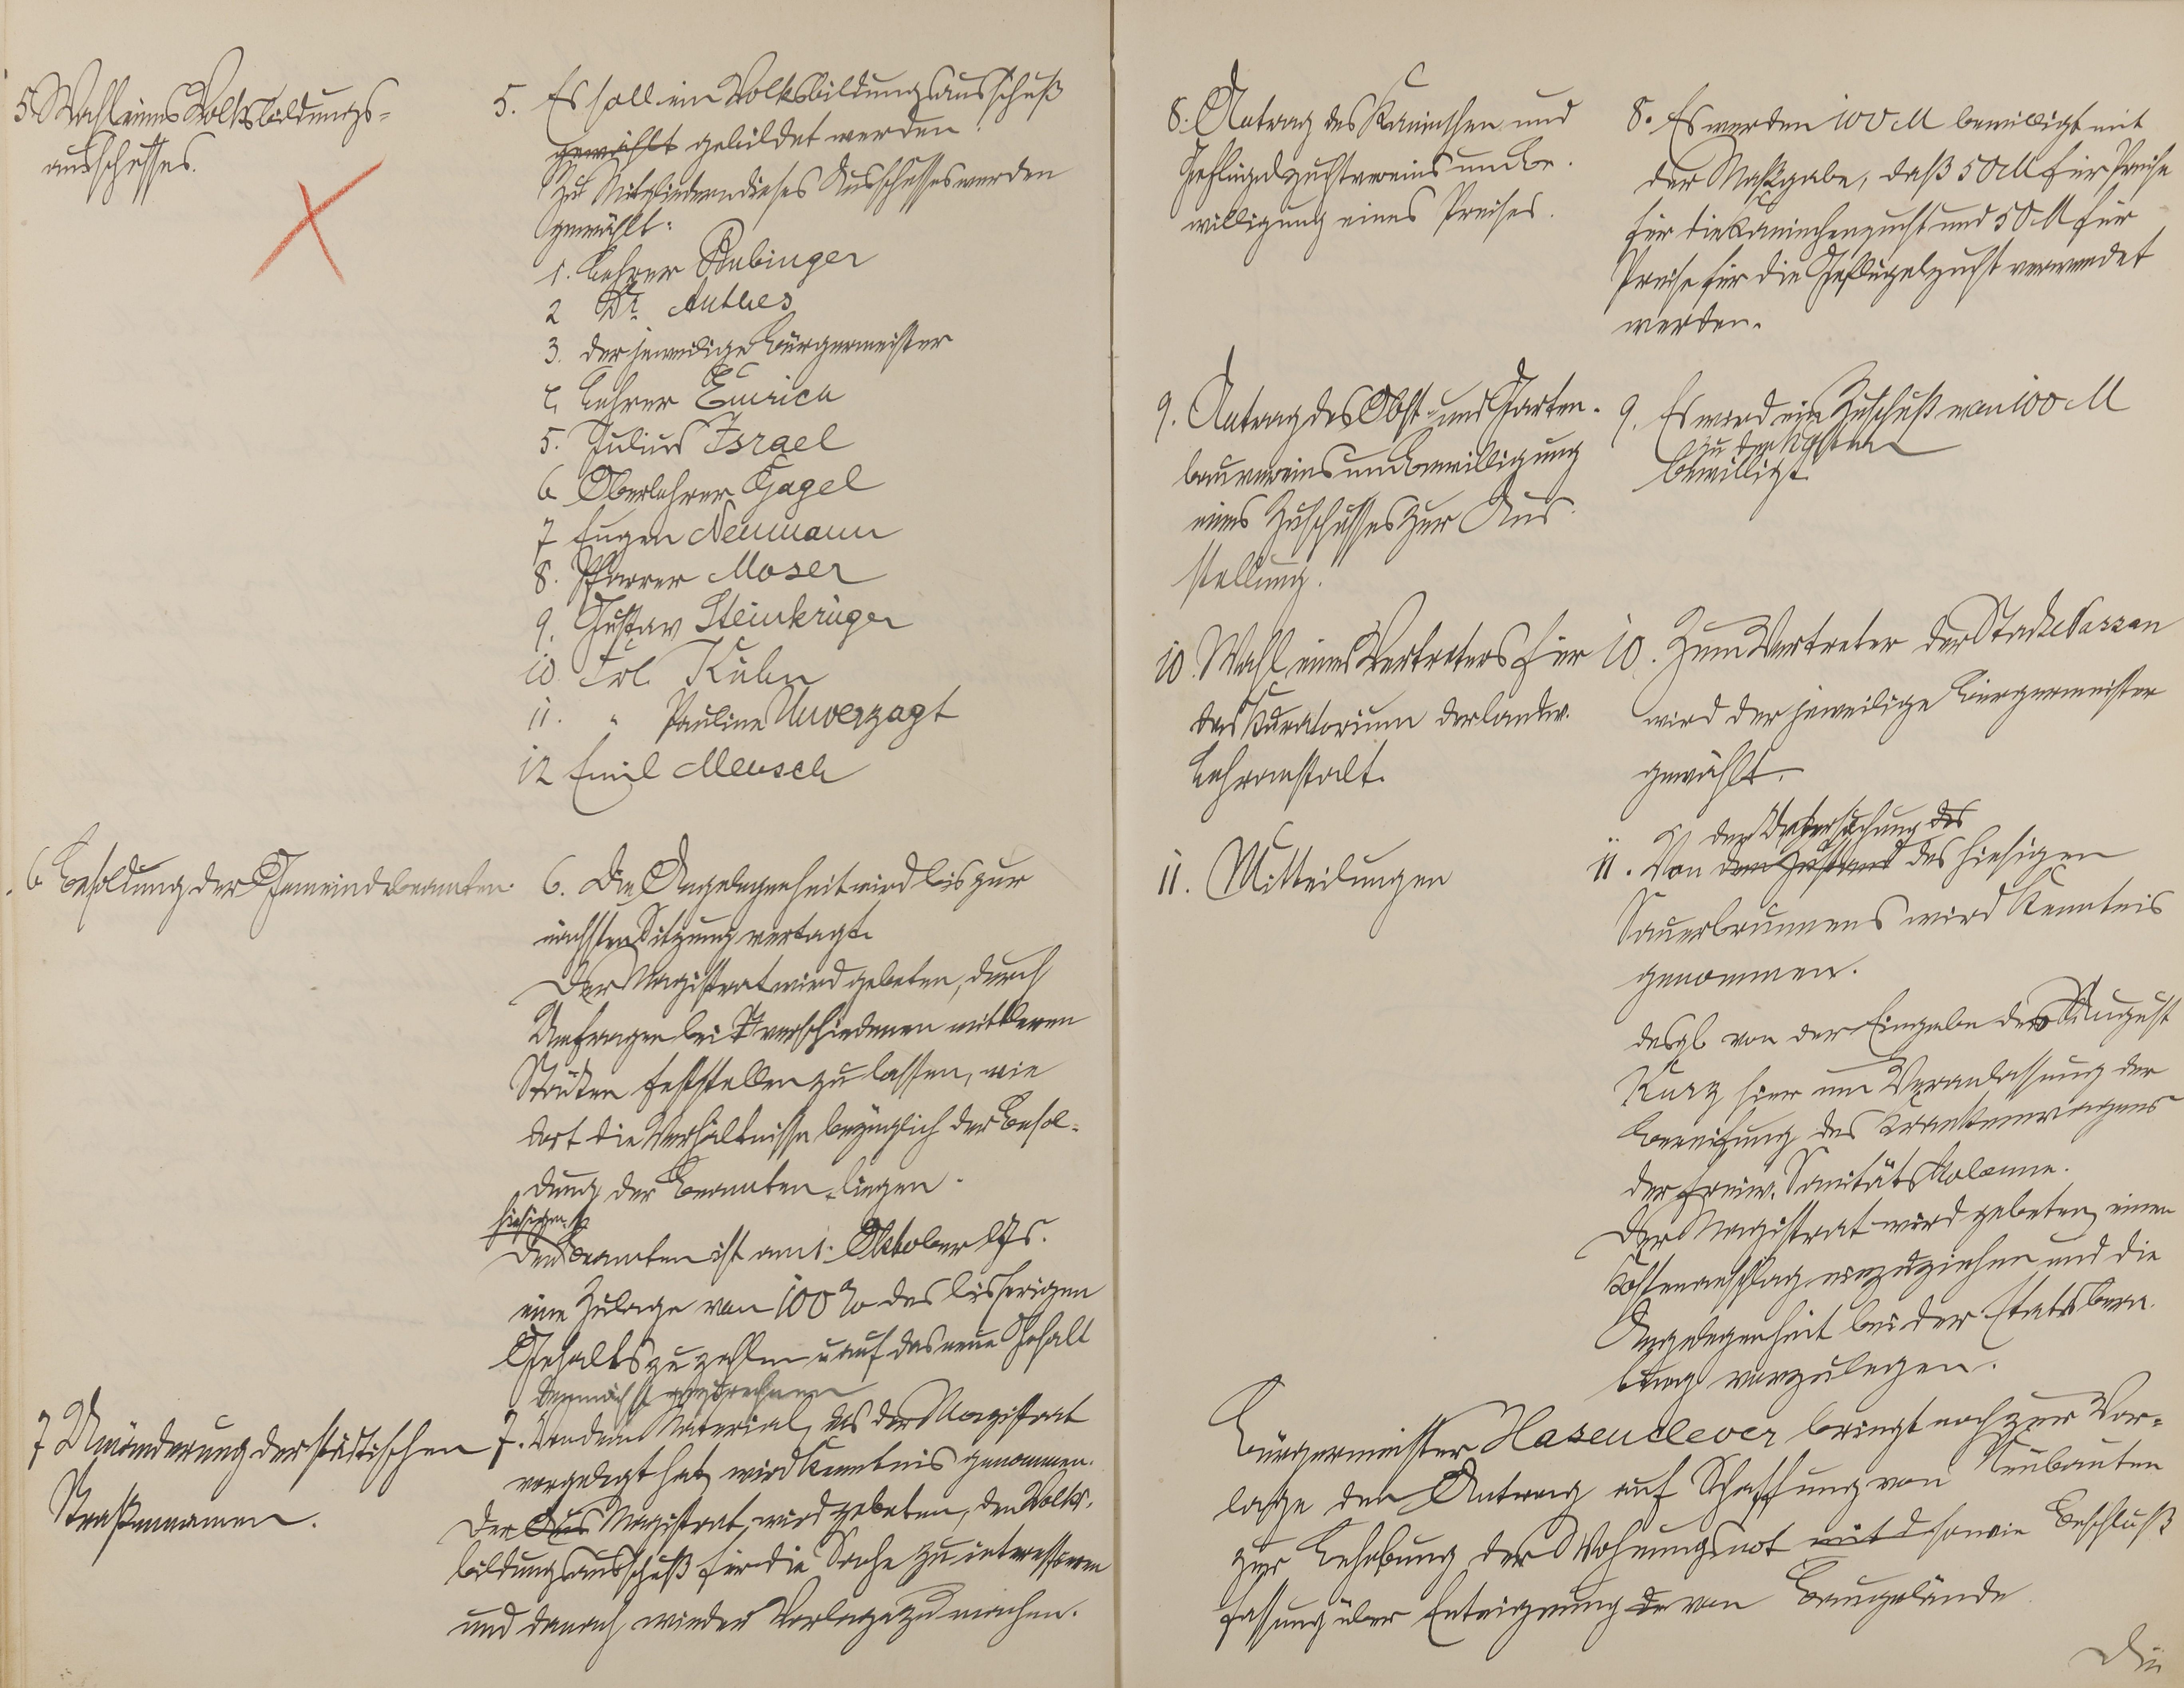 5. Wahl eines Volksbildungs-
ausschusses.
5. Es soll ein Volksbildungsausschuß
gewählt gebildet werden.
Zu Mitgliedern dieses Ausschusses werden
gewählt:
1. Lehrer Bubinger
2 Dr. Anthes
3. der jeweilige Bürgermeister
4. Lehrer Emrich
5. Julius Israel
6 Oberlehrer Gagel
7 Eugen Neumann
8. Pfarrer Moser
9. Gustav Steinkrüger
10 Frl. Kuhn
11. " Pauline Unverzagt
12 Emil Mensch
6 Besoldung der Gemeindebeamten.
6. Die Angelegenheit wird bis zur
nächsten Sitzung vertagt.
Der Magistrat wird gebeten, durch
Umfragen bei verschiedenen mittleren
Städten feststellen zu lassen, wie
dort die Verhältnisse bezüglich der Besol-
dung der Beamten liegen.
hiesigen
Den Beamten ist am 1. Oktober lfs.
eine Zulage von 100 % des bisherigen
Gehalts zu zahlen u auf das neue Gehalt
demnächst anzurechnen
7 Umänderung der städtischen
Straßennamen.
7. Von dem Material, das der Magistrat
vorgelegt hat, wird Kenntnis genommen.
Der Aus Magistrat wird gebeten, den Volks-
bildungsausschuß für die Sache zu interessieren
und danach wieder Vorlage zu machen.
8. Antrag des Kaninchen und
Geflügelzuchtvereins um Be-
willigung eines Preises.
8. Es werden 100 M bewilligt mit
der Maßgabe, daß 50 M für Preise
für die Kaninchenzucht und 50 M für
Preise für die Geflügelzucht verwendet
werden.
9. Antrag des Obst- und Garten-
bauvereins um Bewilligung
eines Zuschusses zur Aus-
stellung.
9. Es wird ein Zuschuß von 100 M
zu den Kosten
bewilligt.
10. Wahl eines Vertreters für
das Kuratorium der landw.
Lehranstalt.
10. Zum Vertreter der Stadt Nassau
wird der jeweilige Bürgermeister
gewählt.
11. Mitteilungen
der Untersuchung des
11. Von dem Zustand des hiesigen
Sauerbrunnens wird Kenntnis
genommen.
desgl. von der Eingabe des August
Kurz hier um Veranlassung der
Bereifung des Krankenwagens
der freiw. Sanitätskolonne.
Der Magistrat wird gebeten, einen
Kostenanschlag einzuziehen und die
Angelegenheit bei der Etatsbera-
tung vorzulegen.
Bürgermeister Hasenclever bringt noch zur Vor-
lage den Antrag auf Schaffung von Neubauten
zur Behebung der Wohnungsnot mit sowie Beschluß
fassung über Enteignung de von Baugelände
Die